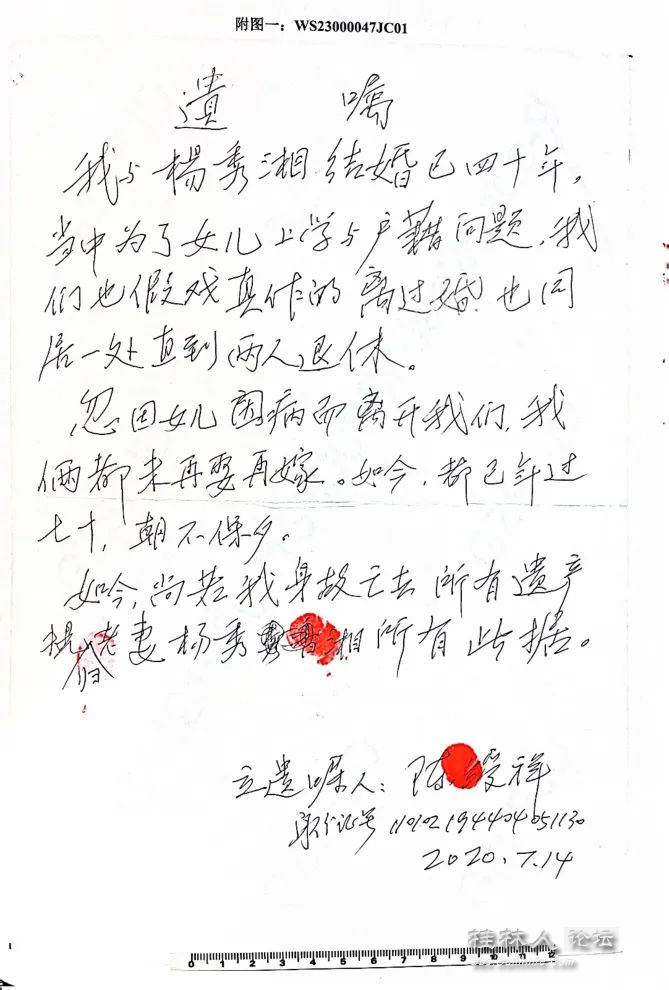 附图一：WS23000047JC01
遺 嘱
我与楊秀湘结婚已四十年，
当中为了女儿上学与户籍问题，我
们也假戏真作的离过婚，也同
居一处直到两人退休。
忽因女儿因病而离开我们，我
俩都未再娶再嫁。如今，都已年过
七十，朝不保夕。
如今，尚若我身故亡去所有遗产
归老妻杨秀湘所有此据。
立遗嘱人：陈绶祥
身份证号
2020.7.14
0 1 2 3 4 5 6 7 8 9 10 11 12
桂林人论坛